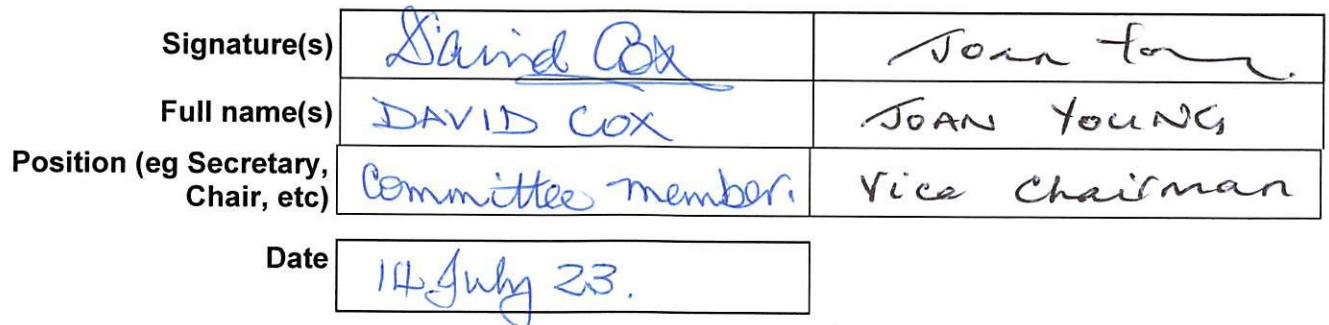 Signature(s) David Cox Joan Young
Full name(s) DAVID COX JOAN YOUNG
Position (eg Secretary, Committee member. Vice Chairman
Chair, etc)
Date 14 July 23.